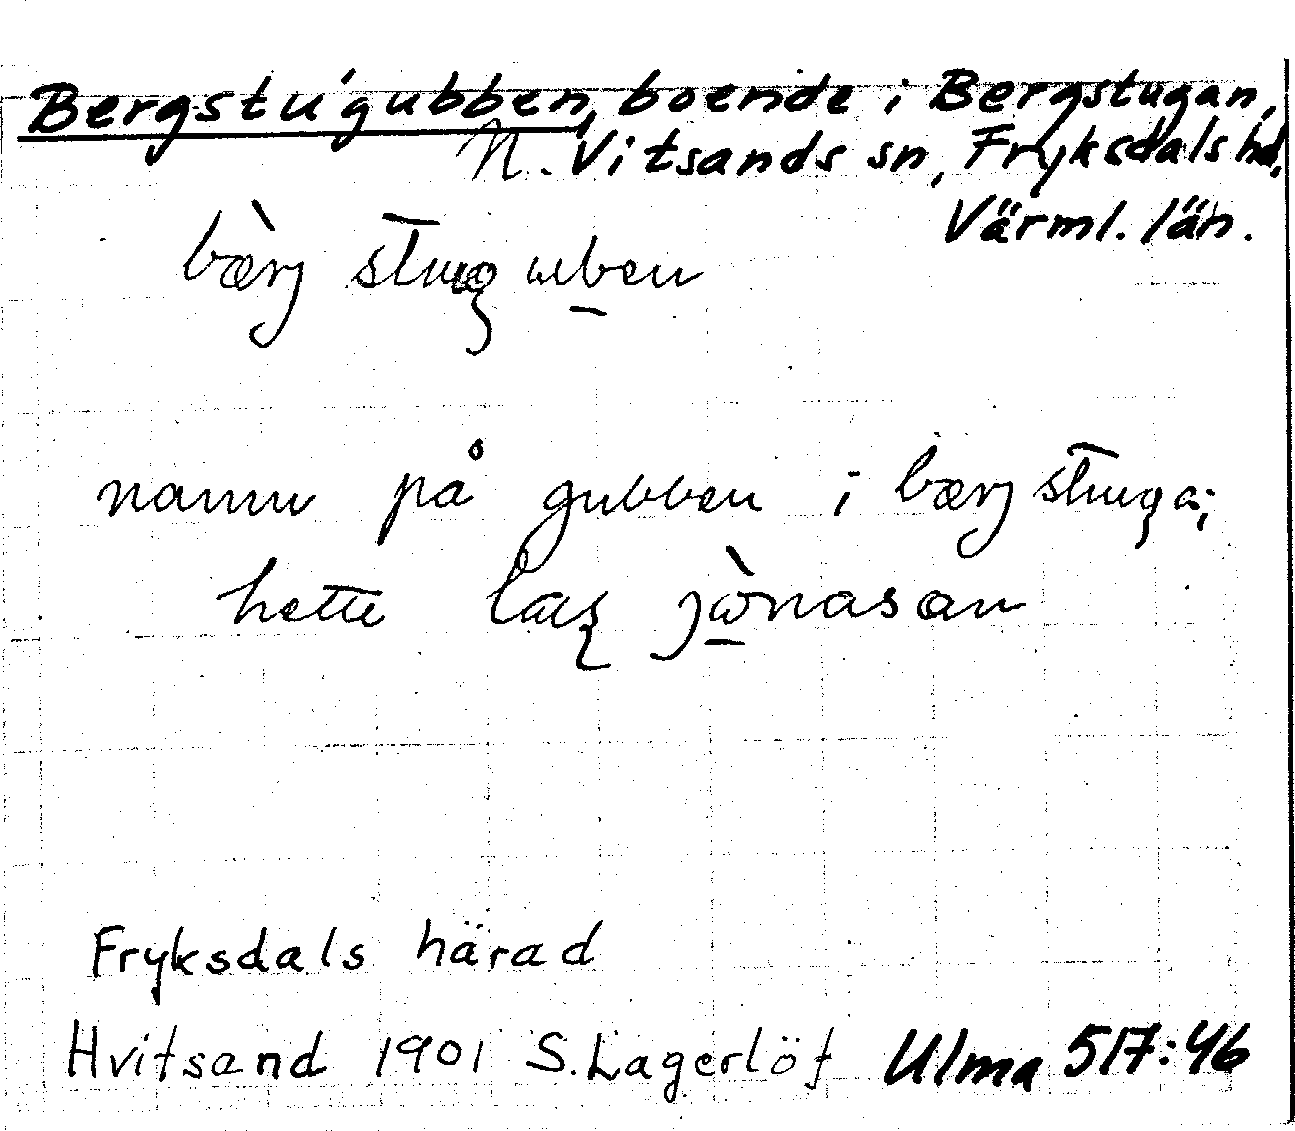 Bergstu'gubben, boende i Bergstugan,
N. Vitsands sn, Fryksdals hd,
Värml. län.
bærj stug uben
namn på gubben i bærj stuga;
hette Las jònasan
Fryksdals härad
Hvitsand 1901 S. Lagerlöf Ulma 517:46